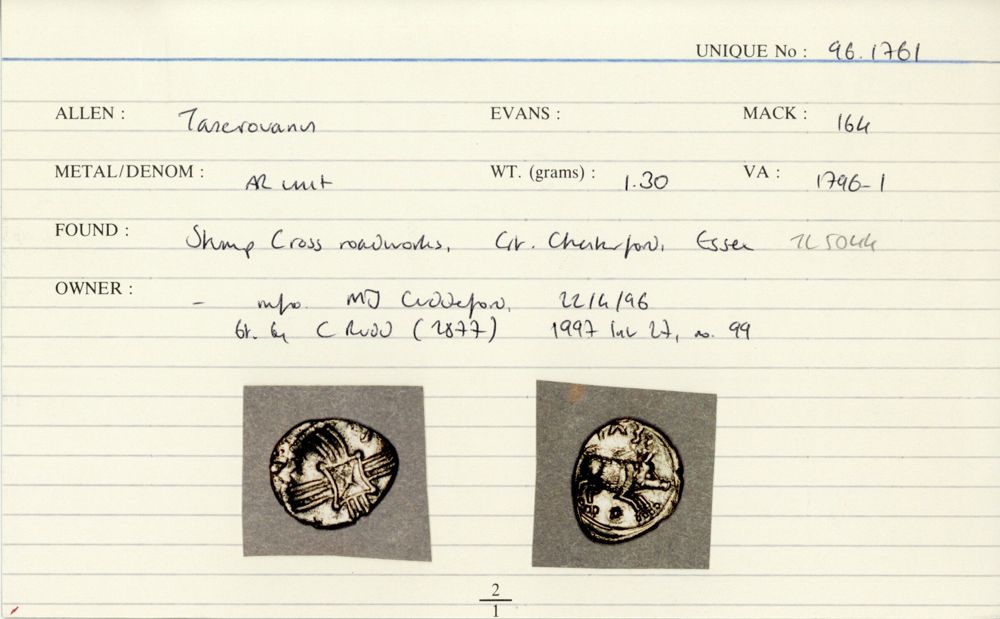 UNIQUE No : 96.1761
ALLEN : Tasciovanus EVANS : MACK : 164
METAL/DENOM : AR unit WT. (grams) : 1.30 VA : 1796-1
FOUND : Stump Cross roadworks, Gt. Chesterford, Essex TL 5044
OWNER : - info. MJ Cuddeford, 22/4/96
bt. by C Rudd (2877) 1997 list 27, no. 99
2
1